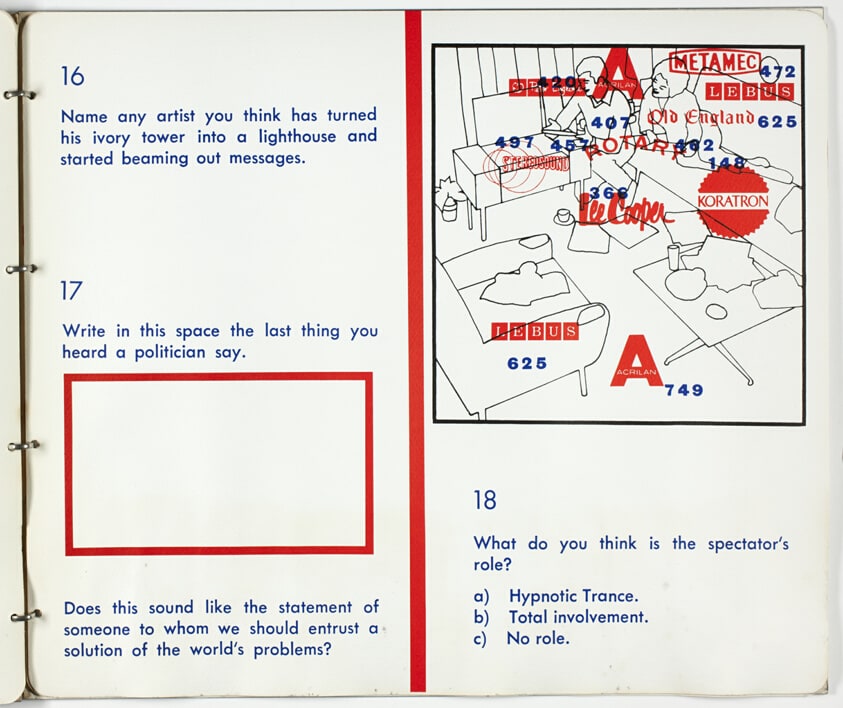 16
Name any artist you think has turned
his ivory tower into a lighthouse and
started beaming out messages.
17
Write in this space the last thing you
heard a politician say.
Does this sound like the statement of
someone to whom we should entrust a
solution of the world's problems?
METAMEC
472
420
A
ACRILAN
LEBUS
407
Old England 625
497
457
ROTARY
462
STEREOSOUND
148
366
Lee Cooper
KORATRON
LEBUS
625
A
ACRILAN
749
18
What do you think is the spectator's
role?
a) Hypnotic Trance.
b) Total involvement.
c) No role.